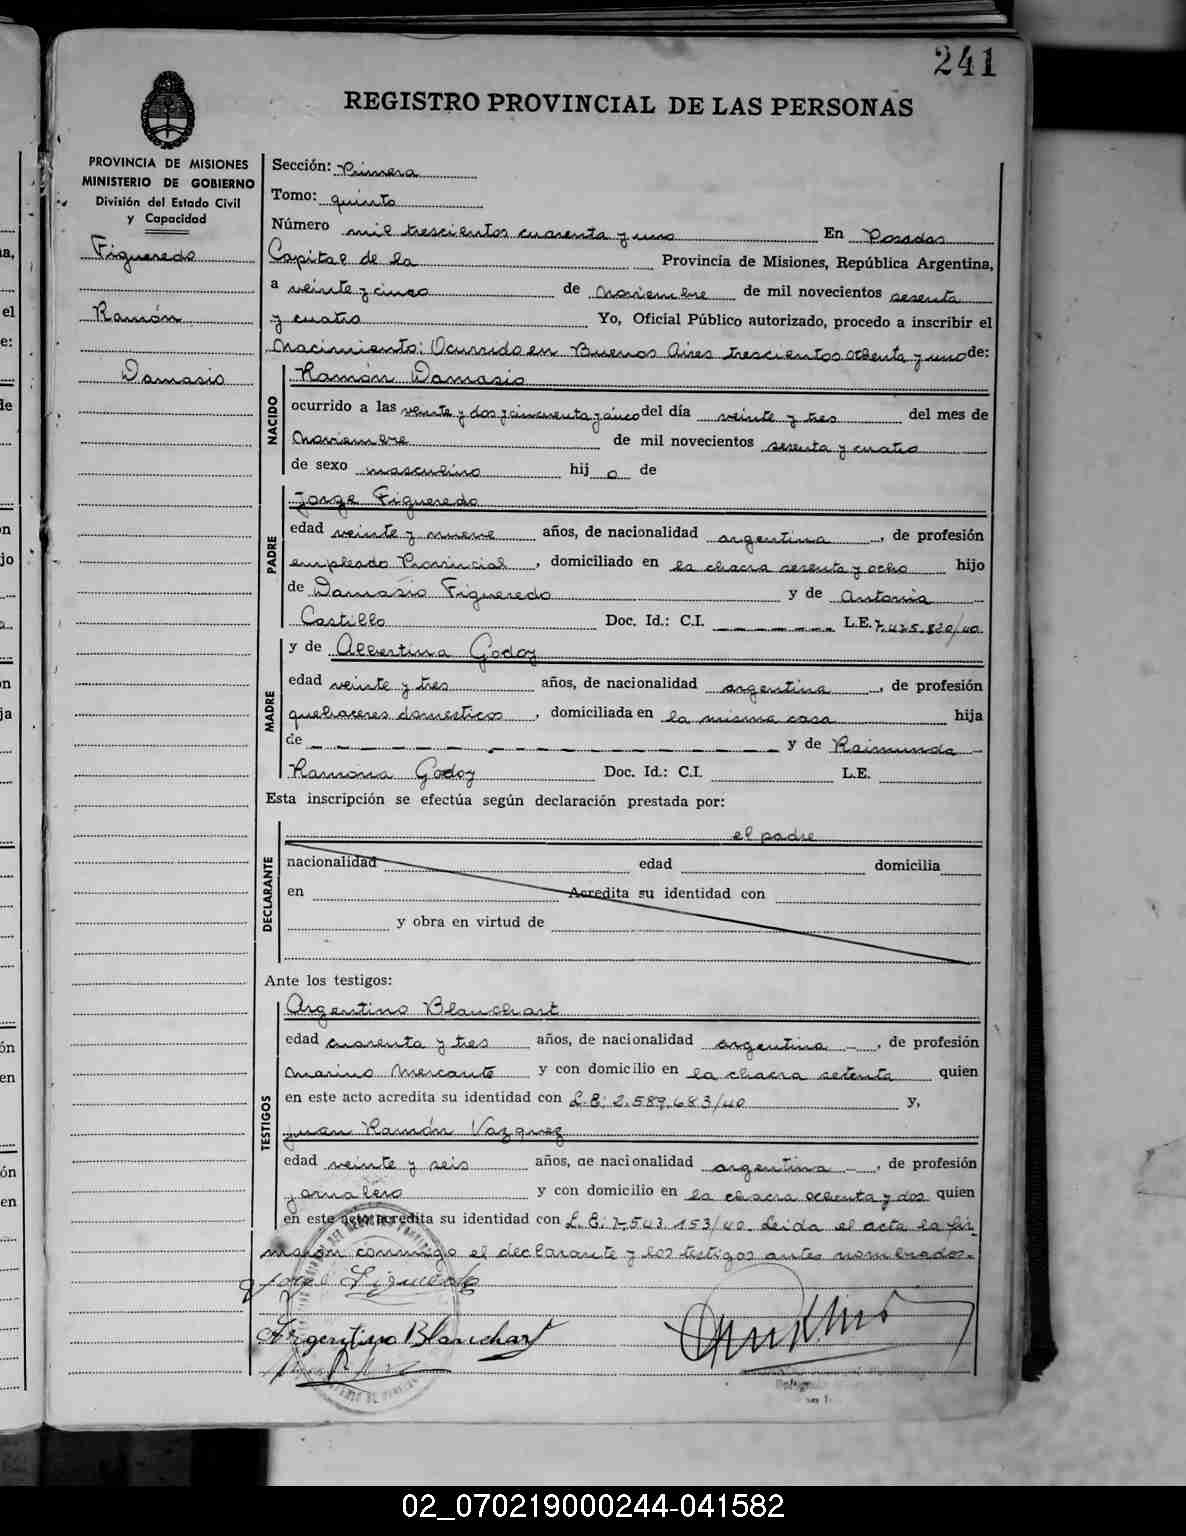 241
REGISTRO PROVINCIAL DE LAS PERSONAS
PROVINCIA DE MISIONES
MINISTERIO DE GOBIERNO
División del Estado Civil
y Capacidad
Figueredo
Ramón
Damasio
Sección: Primera
Tomo: quinto
Número mil trescientos cuarenta y uno En Posadas
Capital de la Provincia de Misiones, República Argentina,
a veinte y cinco de noviembre de mil novecientos sesenta
y cuatro Yo, Oficial Público autorizado, procedo a inscribir el
Nacimiento: Ocurrido en Buenos Aires trescientos ochenta y uno de:
NACIDO
Ramón Damasio
ocurrido a las veinte y dos y cincuenta y cinco del día veinte y tres del mes de
noviembre de mil novecientos sesenta y cuatro
de sexo masculino hij o de
PADRE
Jorge Figueredo
edad veinte y nueve años, de nacionalidad argentina, de profesión
empleado Provincial, domiciliado en la chacra sesenta y ocho hijo
de Damasio Figueredo y de Antonia
Castillo Doc. Id.: C.I. L.E. 7.475.820/40
MADRE
y de Albertina Godoy
edad veinte y tres años, de nacionalidad argentina, de profesión
quehaceres domésticos, domiciliada en la misma casa hija
de y de Raimunda
Ramona Godoy Doc. Id.: C.I. L.E.
Esta inscripción se efectúa según declaración prestada por:
DECLARANTE
el padre
nacionalidad edad domicilia
en Acredita su identidad con
y obra en virtud de
Ante los testigos:
TESTIGOS
Argentino Blanchart
edad cuarenta y tres años, de nacionalidad argentina, de profesión
Marino Mercante y con domicilio en la chacra setenta quien
en este acto acredita su identidad con L.E: 2.589.683/40 y,
Juan Ramón Vazquez
edad veinte y seis años, de nacionalidad argentina, de profesión
jornalero y con domicilio en la chacra ochenta y dos quien
en este acto acredita su identidad con L.E: 7.543.153/40. Leida el acta la fir-
maron conmigo el declarante y los testigos antes nombrados.-
Jorge Figueredo
Argentino Blanchart
02_070219000244-041582